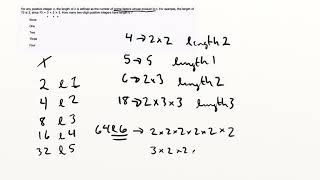 For any positive integer n, the length of n is defined as the number of prime factors whose product is n. For example, the length of 75 is 3, since 75 = 3 × 5 × 5. How many two-digit positive integers have length 6?
None
One
Two
Three
Four
4 → 2×2 length 2
5 → 5 length 1
6 → 2×3 length 2
18 → 2×3×3 length 3
64 l 6 → 2×2×2×2×2×2
3×2×2,
X
2 l 1
4 l 2
8 l 3
16 l 4
32 l 5